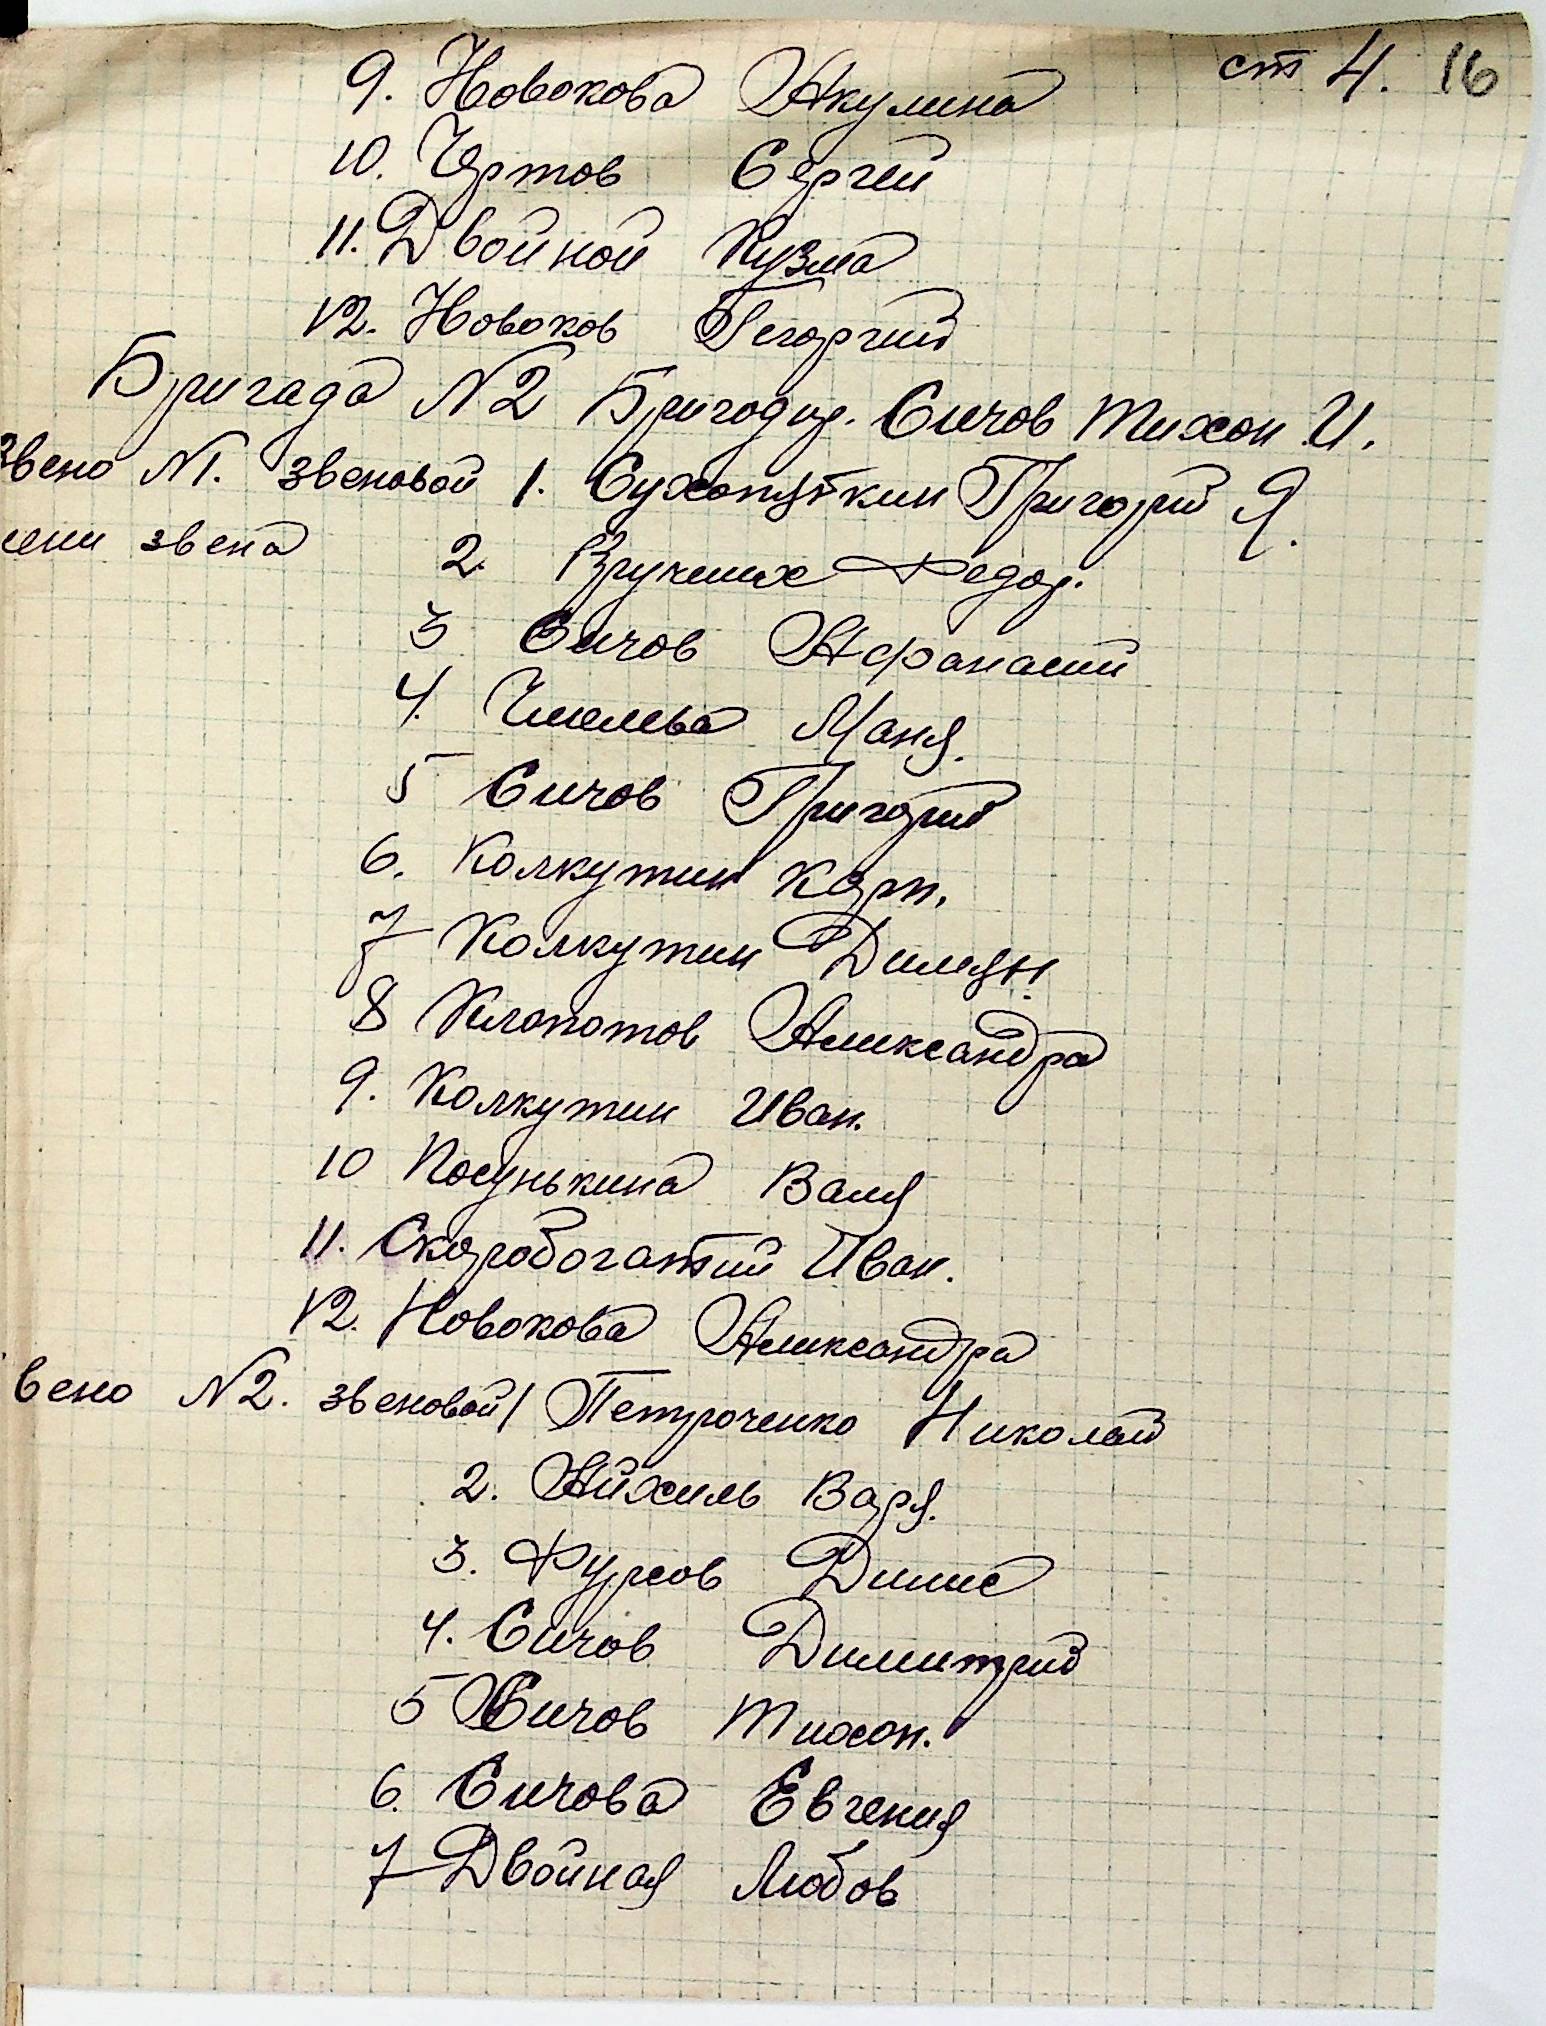 ст 4. 16
9. Новокова Акулина
10. Чертов Сергей
11. Двойной Кузма
12. Новоков Гегоргий
Бригада №2 Бригадир. Сичов Тихон И.
Звено №1. звеновой 1. Сухопуткин Григорий Я.
лени звена 2. Федор.
3 Сичов Афанасий
4. Маня.
5 Сичов Григорий
6. Колкутин Карп.
7 Колкутин Димян.
8 Клопотов Александра
9. Колкутин Иван.
10 Косунькина Валя
11. Скоробогатий Иван.
12. Новокова Александра
вено №2. звеновой 1 Петроченко Николай
2. Айхиль Варя.
3. Фурсов Динис
4. Сичов Димитрий
5 Сичов Тихон.
6. Сичова Евгения
7 Двойная Любов